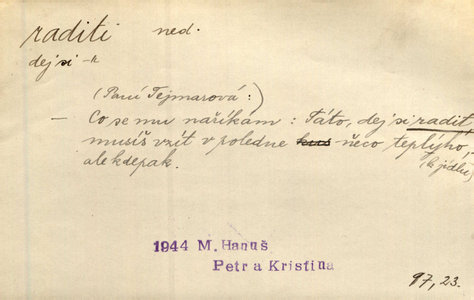 raditi ned.
dej si -it
(Paní Tejmarová:)
— Co se mu naříkám: Táto, dej si radit,
musíš vzít v poledne kus něco teplýho, -
ale kdepak. (k jídlu)
1944 M. Hanuš
Petr a Kristina
97, 23.